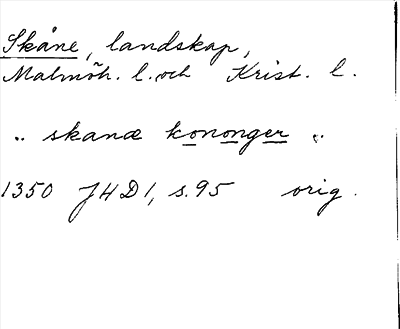 Skåne, landskap,
Malmöh. l. och Krist. l.
.. skanæ kononger ..
1350 JHD 1, s. 95 orig.